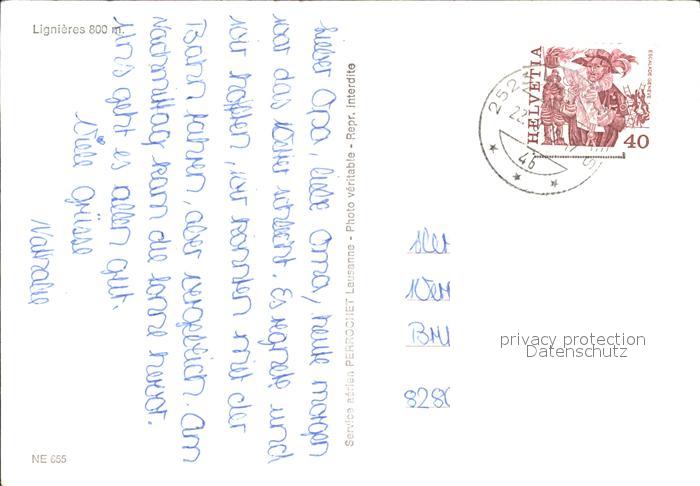 Lignières 800 m.
lieber Opa, liebe Oma, heute morgen
war das Wetter schlecht. Es regnete und
wir hofften, wir könnten mit der
Bahn fahren, aber vergeblich. Am
Nachmittag kam die Sonne hervor.
Uns geht es allen gut.
Viele Grüsse
Nathalie
Service aérien PERROCHET Lausanne - Photo véritable - Repr. interdite
NE 655
2523
22.
46
HELVETIA
ESCALADE GENÈVE
40
privacy protection
Datenschutz
828